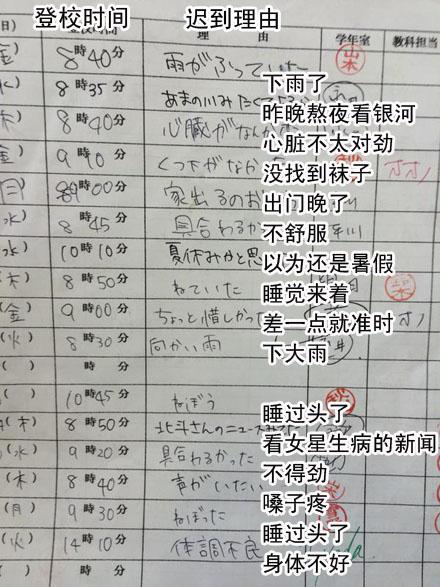 登校时间 迟到理由
日) 登校時間 理由 学年室 教科担当
金) 8時40分 雨がふっていた 山本 下雨了
水) 8時35分 あまの川みたくて 昨晚熬夜看银河
木) 8時40分 心臓がなんか 心脏不太对劲
金) 9時10分 くつ下がなかった 没找到袜子
月) 9時00分 家出るのお 出门晚了
(水) 8時45分 具合わるか 不舒服
(水) 10時10分 夏休みかと思 以为还是暑假
(木) 8時50分 ねていた 睡觉来着
(金) 9時00分 ちょっと惜しかっ 差一点就准时
(火) 8時30分 向かい雨 下大雨
( ) 時 分
( ) 10時45分 ねぼう 睡过头了
(木) 8時50分 北斗さんのニュース 看女星生病的新闻
(水) 9時20分 具合わるかった 不得劲
(木) 8時40分 声がいたい 嗓子疼
(月) 9時30分 ねぼった 睡过头了
(火) 14時10分 体調不良 身体不好